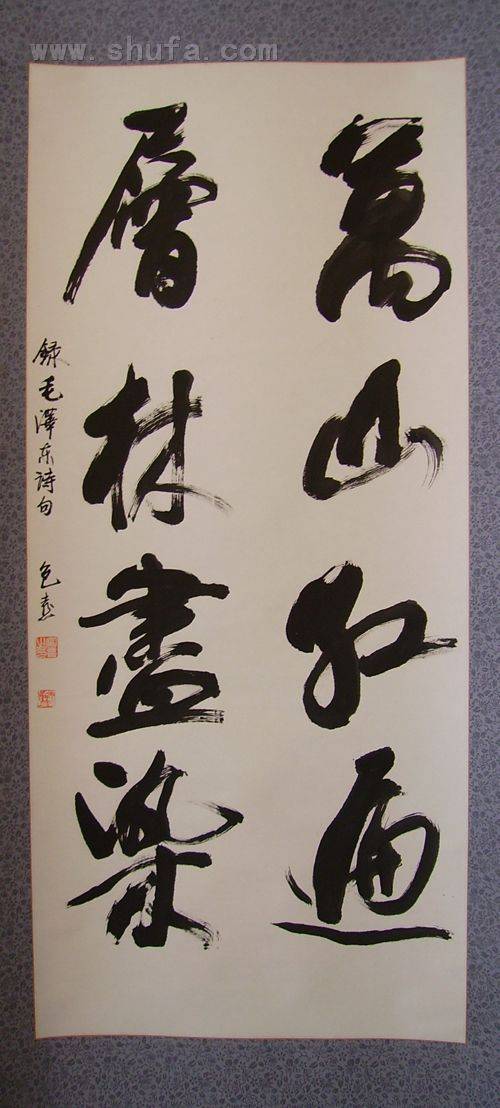 www.shufa.com
萬山红遍
層林盡染
録毛澤东詩句